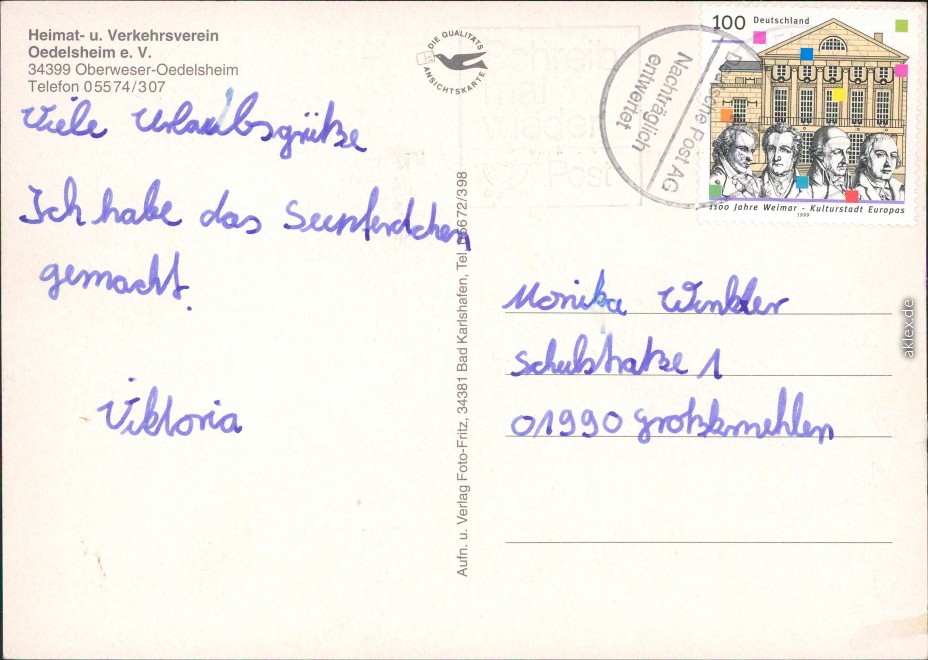 Heimat- u. Verkehrsverein
Oedelsheim e. V.
34399 Oberweser-Oedelsheim
Telefon 05574/307
Viele Urlaubsgrüße
Ich habe das Seepferdchen
gemacht.
Viktoria
DIE QUALITÄTS
ANSICHTSKARTE
Aufn. u. Verlag Foto-Fritz, 34381 Bad Karlshafen, Tel. 05672/398
Nachträglich
entwertet
Deutsche Post AG
Post
100 Deutschland
1100 Jahre Weimar - Kulturstadt Europas
1999
Monika Winkler
Schulstraße 1
01990 Großkmehlen
aklex.de